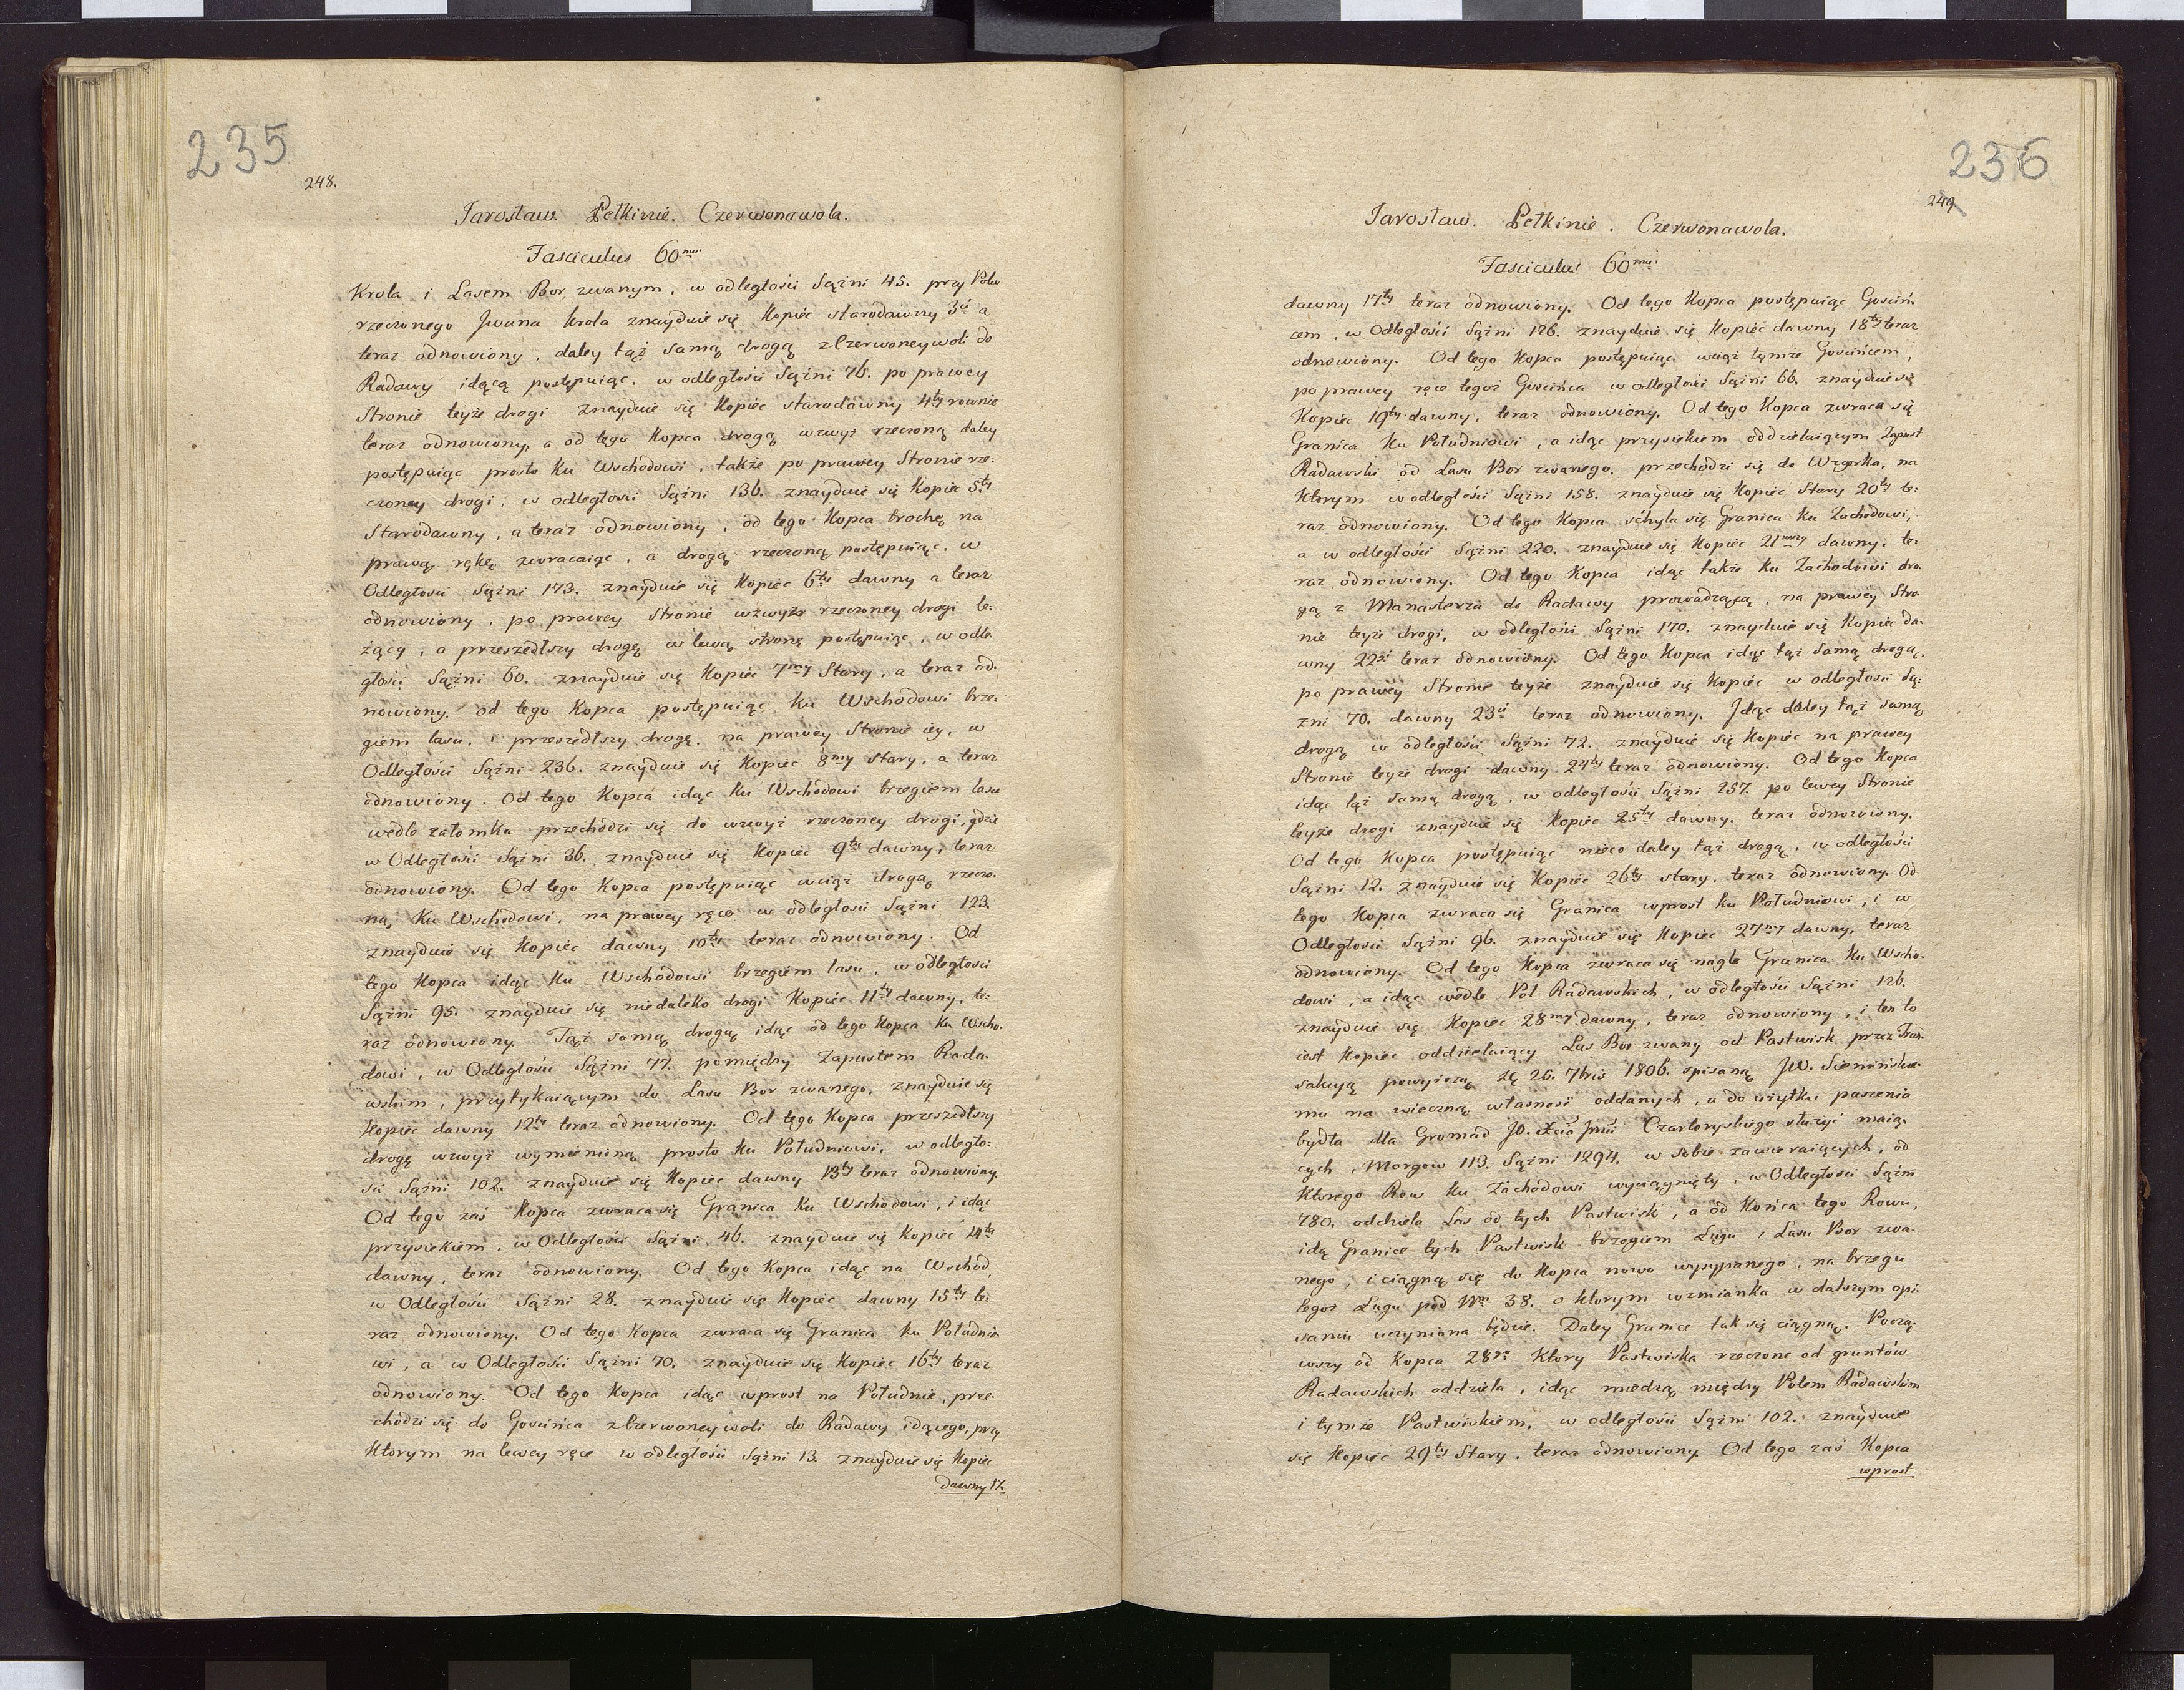 235
248.
Jarosław. Pełkinie. Czerwonawola.
Fasciculus 60mus
Krola i Lasem Bor zwanym, w odległości Sążni 45. przy Polu
rzeczonego Jwana Krola znayduie się Kopiec starodawny 3ci a
teraz odnowiony, daley tąż samą drogą z Czerwoneywoli do
Radawy idącą postępuiąc, w odległości Sążni 76. po prawey
Stronie teyże drogi znayduie się Kopiec starodawny 4ty rownie
teraz odnowiony, a od tego Kopca drogą wzwyż rzeczoną daley
postępuiąc prosto ku Wschodowi, także po prawey Stronie rze-
czoney drogi, w odległości Sążni 136. znayduie się Kopiec 5ty
Starodawny, a teraz odnowiony, od tego Kopca trochę na
prawą rękę zwracaiąc, a drogą rzeczoną postępuiąc, w
Odległości Sążni 173. znayduie się Kopiec 6ty dawny a teraz
odnowiony, po prawey Stronie wzwyż rzeczoney drogi le-
żący, a przeszedłszy drogę w lewą stronę postępuiąc, w odle-
głości Sążni 60. znayduie się Kopiec 7my Stary, a teraz od-
nowiony. od tego Kopca postępuiąc ku Wschodowi brze-
giem lasu, i przeszedłszy drogę, na prawey Stronie iey, w
Odległości Sążni 236. znayduie się Kopiec 8my stary, a teraz
odnowiony. Od tego Kopca idąc ku Wschodowi brzegiem lasu
wedle załomka przechodzi się do wzwyż rzeczoney drogi, gdzie
w Odległości Sążni 36. znayduie się Kopiec 9ty dawny, teraz
odnowiony. Od tego Kopca postępuiąc wciąż drogą rzeczo-
ną, Ku Wschodowi, na prawey ręce w odległości Sążni 123.
znayduie się Kopiec dawny 10ty teraz odnowiony. Od
tego Kopca idąc ku Wschodowi brzegiem lasu, w odległości
Sążni 95. znayduie się niedaleko drogi Kopiec 11ty dawny, te-
raz odnowiony. Tąż samą drogą idąc od tego Kopca ku Wscho-
dowi, w Odległości Sążni 77. pomiędzy Zapustem Rada-
wskim, przytykaiącym do Lasu Bor zwanego, znayduie się
Kopiec dawny 12ty teraz odnowiony. Od tego Kopca przeszedłszy
drogę wzwyż wymienioną prosto ku Południowi, w odległo-
ści Sążni 102. znayduie się Kopiec dawny 13ty teraz odnowiony.
Od tego zaś Kopca zwraca się Granica ku Wschodowi, i idąc
przysiekiem, w Odległości Sążni 46. znayduie się Kopiec 14ty
dawny, teraz odnowiony. Od tego Kopca idąc na Wschod,
w Odległości Sążni 28. znayduie się Kopiec dawny 15ty te-
raz odnowiony. Od tego Kopca zwraca się Granica ku Południo-
wi, a w Odległości Sążni 70. znayduie się Kopiec 16ty teraz
odnowiony. Od tego Kopca idąc wprost na Południe, prze-
chodzi się do Gościńca z Czerwoneywoli do Radawy idącego, przy
Ktorym na lewey ręce w odległości Sążni 13. znayduie się Kopiec
dawny 17.
236
249
Jarosław. Pełkinie. Czerwonawola.
Fasciculus 60mus
dawny 17ty teraz odnowiony. Od tego Kopca postępuiąc Gościń-
cem, w Odległości Sążni 126. znayduie się Kopiec dawny 18ty teraz
odnowiony. Od tego Kopca postępuiąc wciąż tymże Gościńcem,
po prawey ręce tegoż Gościńca w odległości Sążni 66. znayduie się
Kopiec 19ty dawny, teraz odnowiony. Od tego Kopca zwraca się
Granica ku Południowi, a idąc przysiekiem oddzielaiącym Zapust
Radawski od Lasu Bor zwanego, przechodzi się do Wzgorka, na
Ktorym w odległości Sążni 158. znayduie się Kopiec Stary 20ty te-
raz odnowiony. Od tego Kopca schyla się Granica ku Zachodowi,
a w odległości Sążni 220. znayduie się Kopiec 21wszy dawny, te-
raz odnowiony. Od tego Kopca idąc także ku Zachodowi dro-
gą z Manasterza do Radawy prowadzącą, na prawey Stro-
nie teyże drogi, w odległości Sążni 170. znayduie się Kopiec da-
wny 22gi teraz odnowiony. Od tego Kopca idąc tąż samą drogą,
po prawey Stronie teyże znayduie się Kopiec w odległości Są-
żni 70. dawny 23ci teraz odnowiony. Jdąc daley tąż samą
drogą w odległości Sążni 72. znayduie się Kopiec na prawey
Stronie teyże drogi dawny 24ty teraz odnowiony. Od tego Kopca
idąc tąż samą drogą, w odległości Sążni 257. po lewey Stronie
teyże drogi znayduie się Kopiec 25ty dawny, teraz odnowiony.
Od tego Kopca postępuiąc nieco daley tąż drogą, w odległości
Sążni 12. znayduie się Kopiec 26ty stary, teraz odnowiony. Od
tego Kopca zwraca się Granica wprost ku Południowi, i w
Odległości Sążni 96. znayduie się Kopiec 27my dawny, teraz
odnowiony. Od tego Kopca zwraca się nagle Granica ku Wscho-
dowi, a idąc wedle Pol Radawskich, w odległości Sążni 126.
znayduie się Kopiec 28my dawny, teraz odnowiony, i ten to
iest Kopiec oddzielaiący Las Bor zwany od Pastwisk przez Tran-
sakcyą powyższą dę 26. 7bris 1806. spisaną JW. Siemińskie-
mu na wieczną własność oddanych, a do użytku paszenia
bydła dla Gromad JO. Xcia Jmci Czartoryskiego służyć maią-
cych, Morgow 113. Sążni 1294. w sobie zawieraiących, od
Ktorego Row ku Zachodowi wyciągnięty, w Odległości Sążni
780. oddziela Las od tych Pastwisk, a od Końca tego Rowu,
idą Granice tych Pastwisk brzegiem Ługu i Lasu Bor zwa-
nego, i ciągną się do Kopca nowo wysypanego, na brzegu
tegoż Ługu pod Nro 38. o ktorym wzmianka w dalszym opi-
saniu uczyniona będzie. Daley Granice tak się ciągną. Począ-
wszy od Kopca 28go Ktory Pastwiska rzeczone od gruntów
Radawskich oddziela, idąc miedzą między Polem Radawskim
i tymże Pastwiskiem, w odległości Sążni 102. znayduie
się Kopiec 29ty Stary, teraz odnowiony. Od tego zaś Kopca
wprost